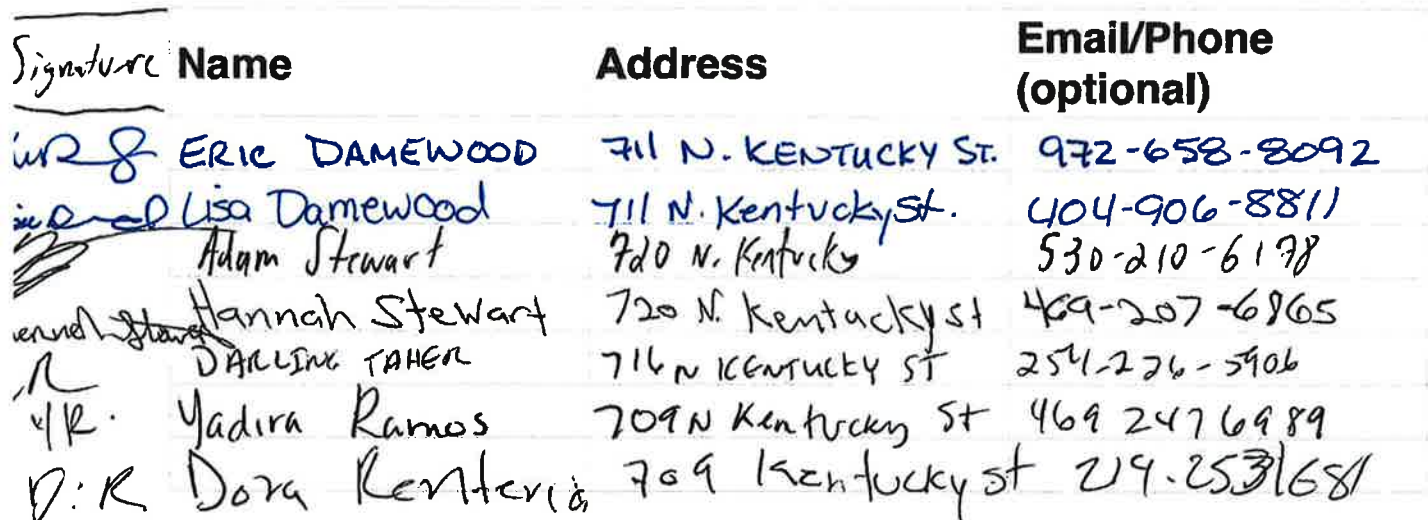 Signature Name Address Email/Phone (optional)
ERIC DAMEWOOD 711 N. KENTUCKY ST. 972-658-8092
Lisa Damewood 711 N. Kentucky St. 404-906-8811
Adam Stewart 720 N. Kentucky 530-210-6178
Hannah Stewart 720 N. Kentucky st 469-207-6865
DARLING TAHER 716 N KENTUCKY ST 254-226-5906
YR. Yadira Ramos 709 N Kentucky St 469 247 6989
D:R Dora Renteria 709 Kentucky st 219.253 1681